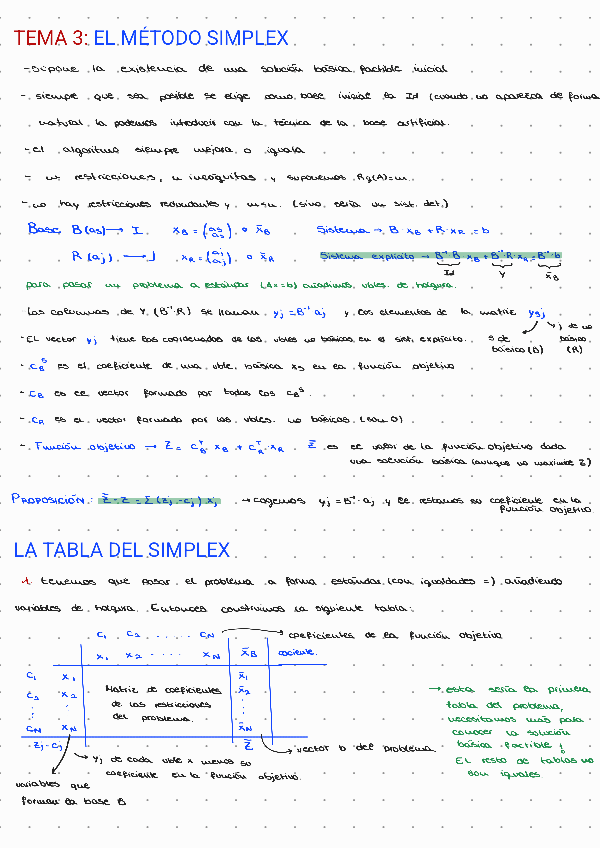 TEMA 3: EL MÉTODO SIMPLEX
- Supone la existencia de una solución básica factible inicial
- siempre que sea posible se elige como base inicial la Id (cuando no aparezca de forma
natural la podemos introducir con la técnica de la base artificial.
- el algoritmo siempre mejora o iguala
- m restricciones, n incógnitas y suponemos Rg(A)=m.
- no hay restricciones redundantes y m<n. (sino sería un sist. det.)
Base B(as) → I xB = (as as) o x̄B Sistema → B·xB + R·xR = b
R(aj) → J xR = (aj aj) o x̄R Sistema explícito → B⁻¹B xB + B⁻¹·R·xR = B⁻¹·b
Id Y x̄B
para pasar un problema a estándar (Ax=b) añadimos vbles. de holgura.
- Las columnas de Y (B⁻¹·R) se llaman yj = B⁻¹aj y los elementos de la matriz ysj
- El vector yj tiene las coordenadas de las vbles no básicas en el sist. explícito. s de básico (B) j de no básico (R)
- cBˢ es el coeficiente de una vble. básica xs en la función objetivo
- cB es el vector formado por todos los cBˢ.
- cR es el vector formado por las vbles. no básicas (son 0)
- Función objetivo → Z = cBᵀ·xB + cRᵀ·xR . Z̄ es el valor de la función objetivo dada
una solución básica (aunque no maximice Z)
PROPOSICIÓN: Z̄ - Z = Σ (zj - cj) xj → cogemos yj = B⁻¹·aj y le restamos su coeficiente en la
función objetivo
LA TABLA DEL SIMPLEX
1 tenemos que pasar el problema a forma estándar (con igualdades =) añadiendo
variables de holgura. Entonces construimos la siguiente tabla:
c1 c2 ..... cN → coeficientes de la función objetivo
x1 x2 ..... xN x̄B cociente.
c1 x1 x̄1
c2 x2 Matriz de coeficientes x̄2
de las restricciones
del problema.
cN xN x̄N
zj - cj Z̄ → vector b del problema.
yj de cada vble x menos su
coeficiente en la función objetivo.
variables que
forman la base B
→ esta sería la primera
tabla del problema,
necesitamos más para
conocer la solución
básica factible ¡
El resto de tablas no
son iguales